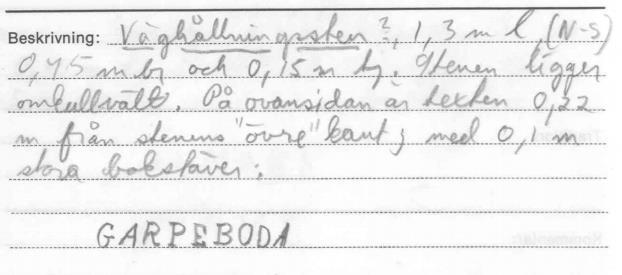 Beskrivning: Väghållningssten?, 1,3 m l (N-S)
0,45 m br och 0,15 m tj. Stenen ligger
omkullvält. På ovansidan är texten 0,22
m från stenens "övre" kant; med 0,1 m
stora bokstäver:
GARPEBODA